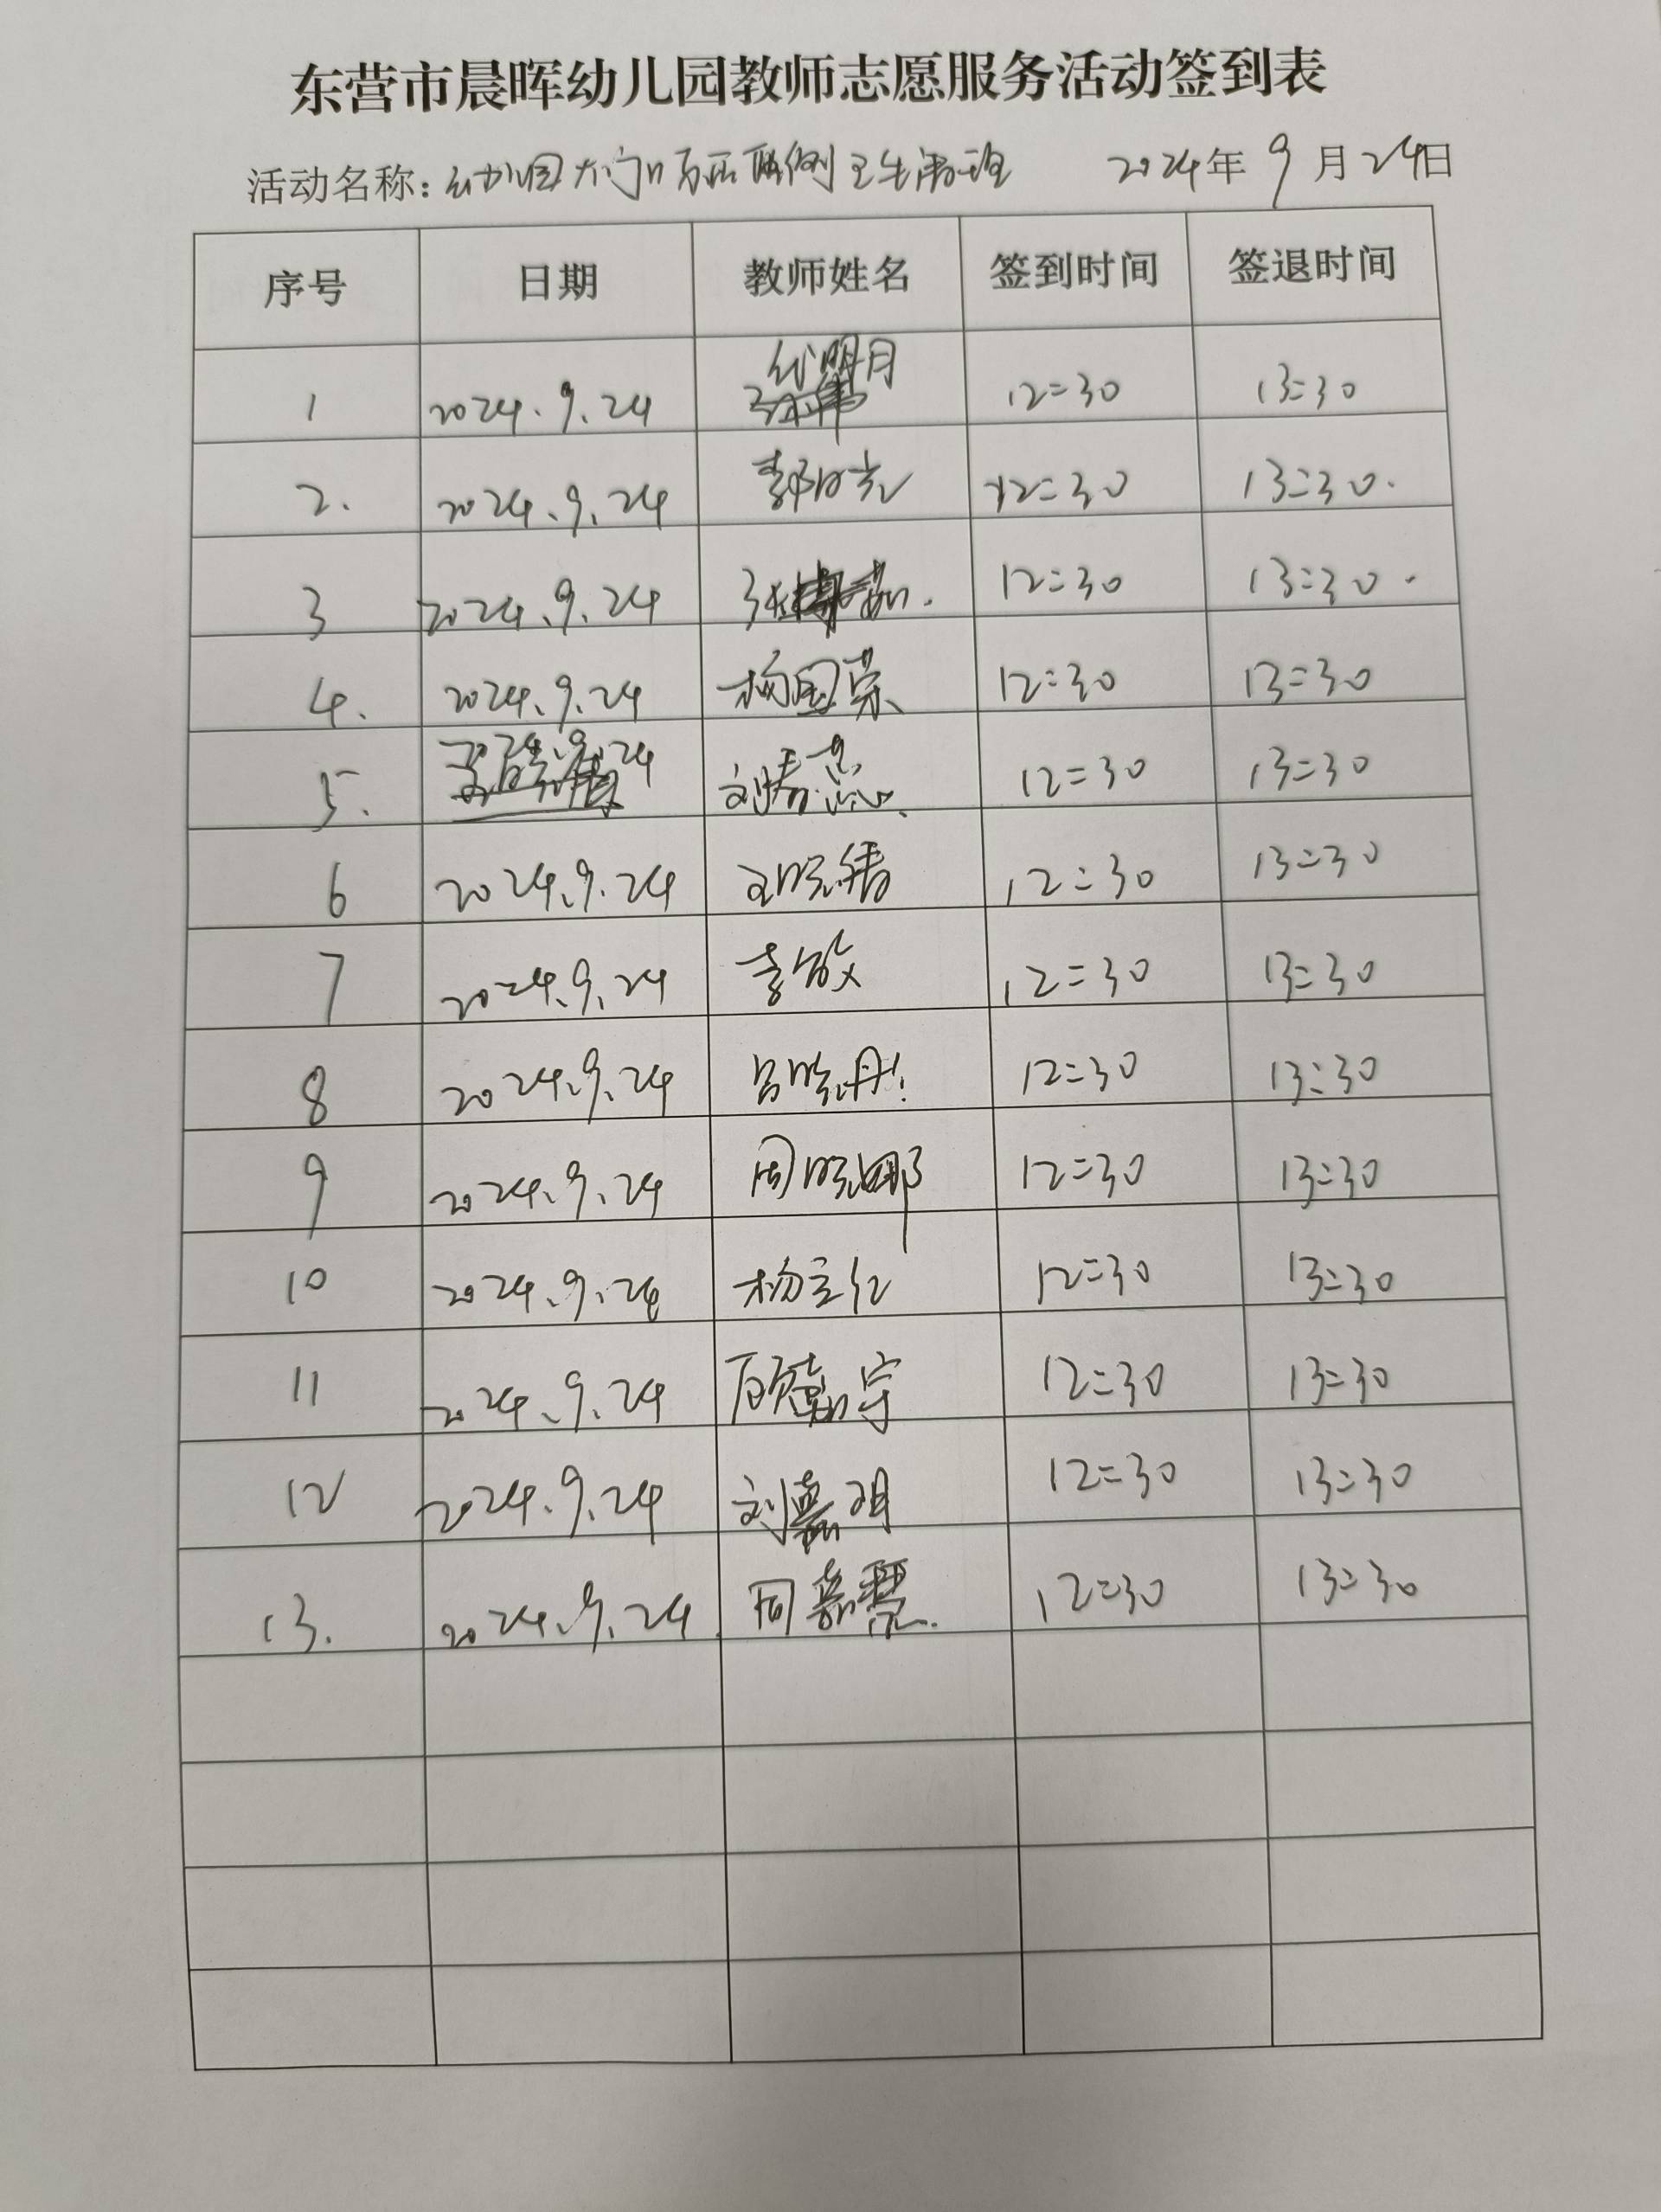 东营市晨晖幼儿园教师志愿服务活动签到表
活动名称: 幼儿园大门口 卫生清理 2024年9月24日
序号 日期 教师姓名 签到时间 签退时间
1 2024.9.24 代明月 12:30 13:30
2. 2024.9.24 郭阳光 12:30 13:30.
3 2024.9.24 12:30 13:30.
4. 2024.9.24 杨国荣 12:30 13:30
5. 2024.9.24 刘春燕 12:30 13:30
6 2024.9.24 王晓倩 12:30 13:30
7 2024.9.24 李敏 12:30 13:30
8 2024.9.24 吕晓丹 12:30 13:30
9 2024.9.24 周晓娜 12:30 13:30
10 2024.9.24 杨立红 12:30 13:30
11 2024.9.24 顾嘉宇 12:30 13:30
12 2024.9.24 刘嘉明 12:30 13:30
13. 2024.9.24. 12:30 13:30